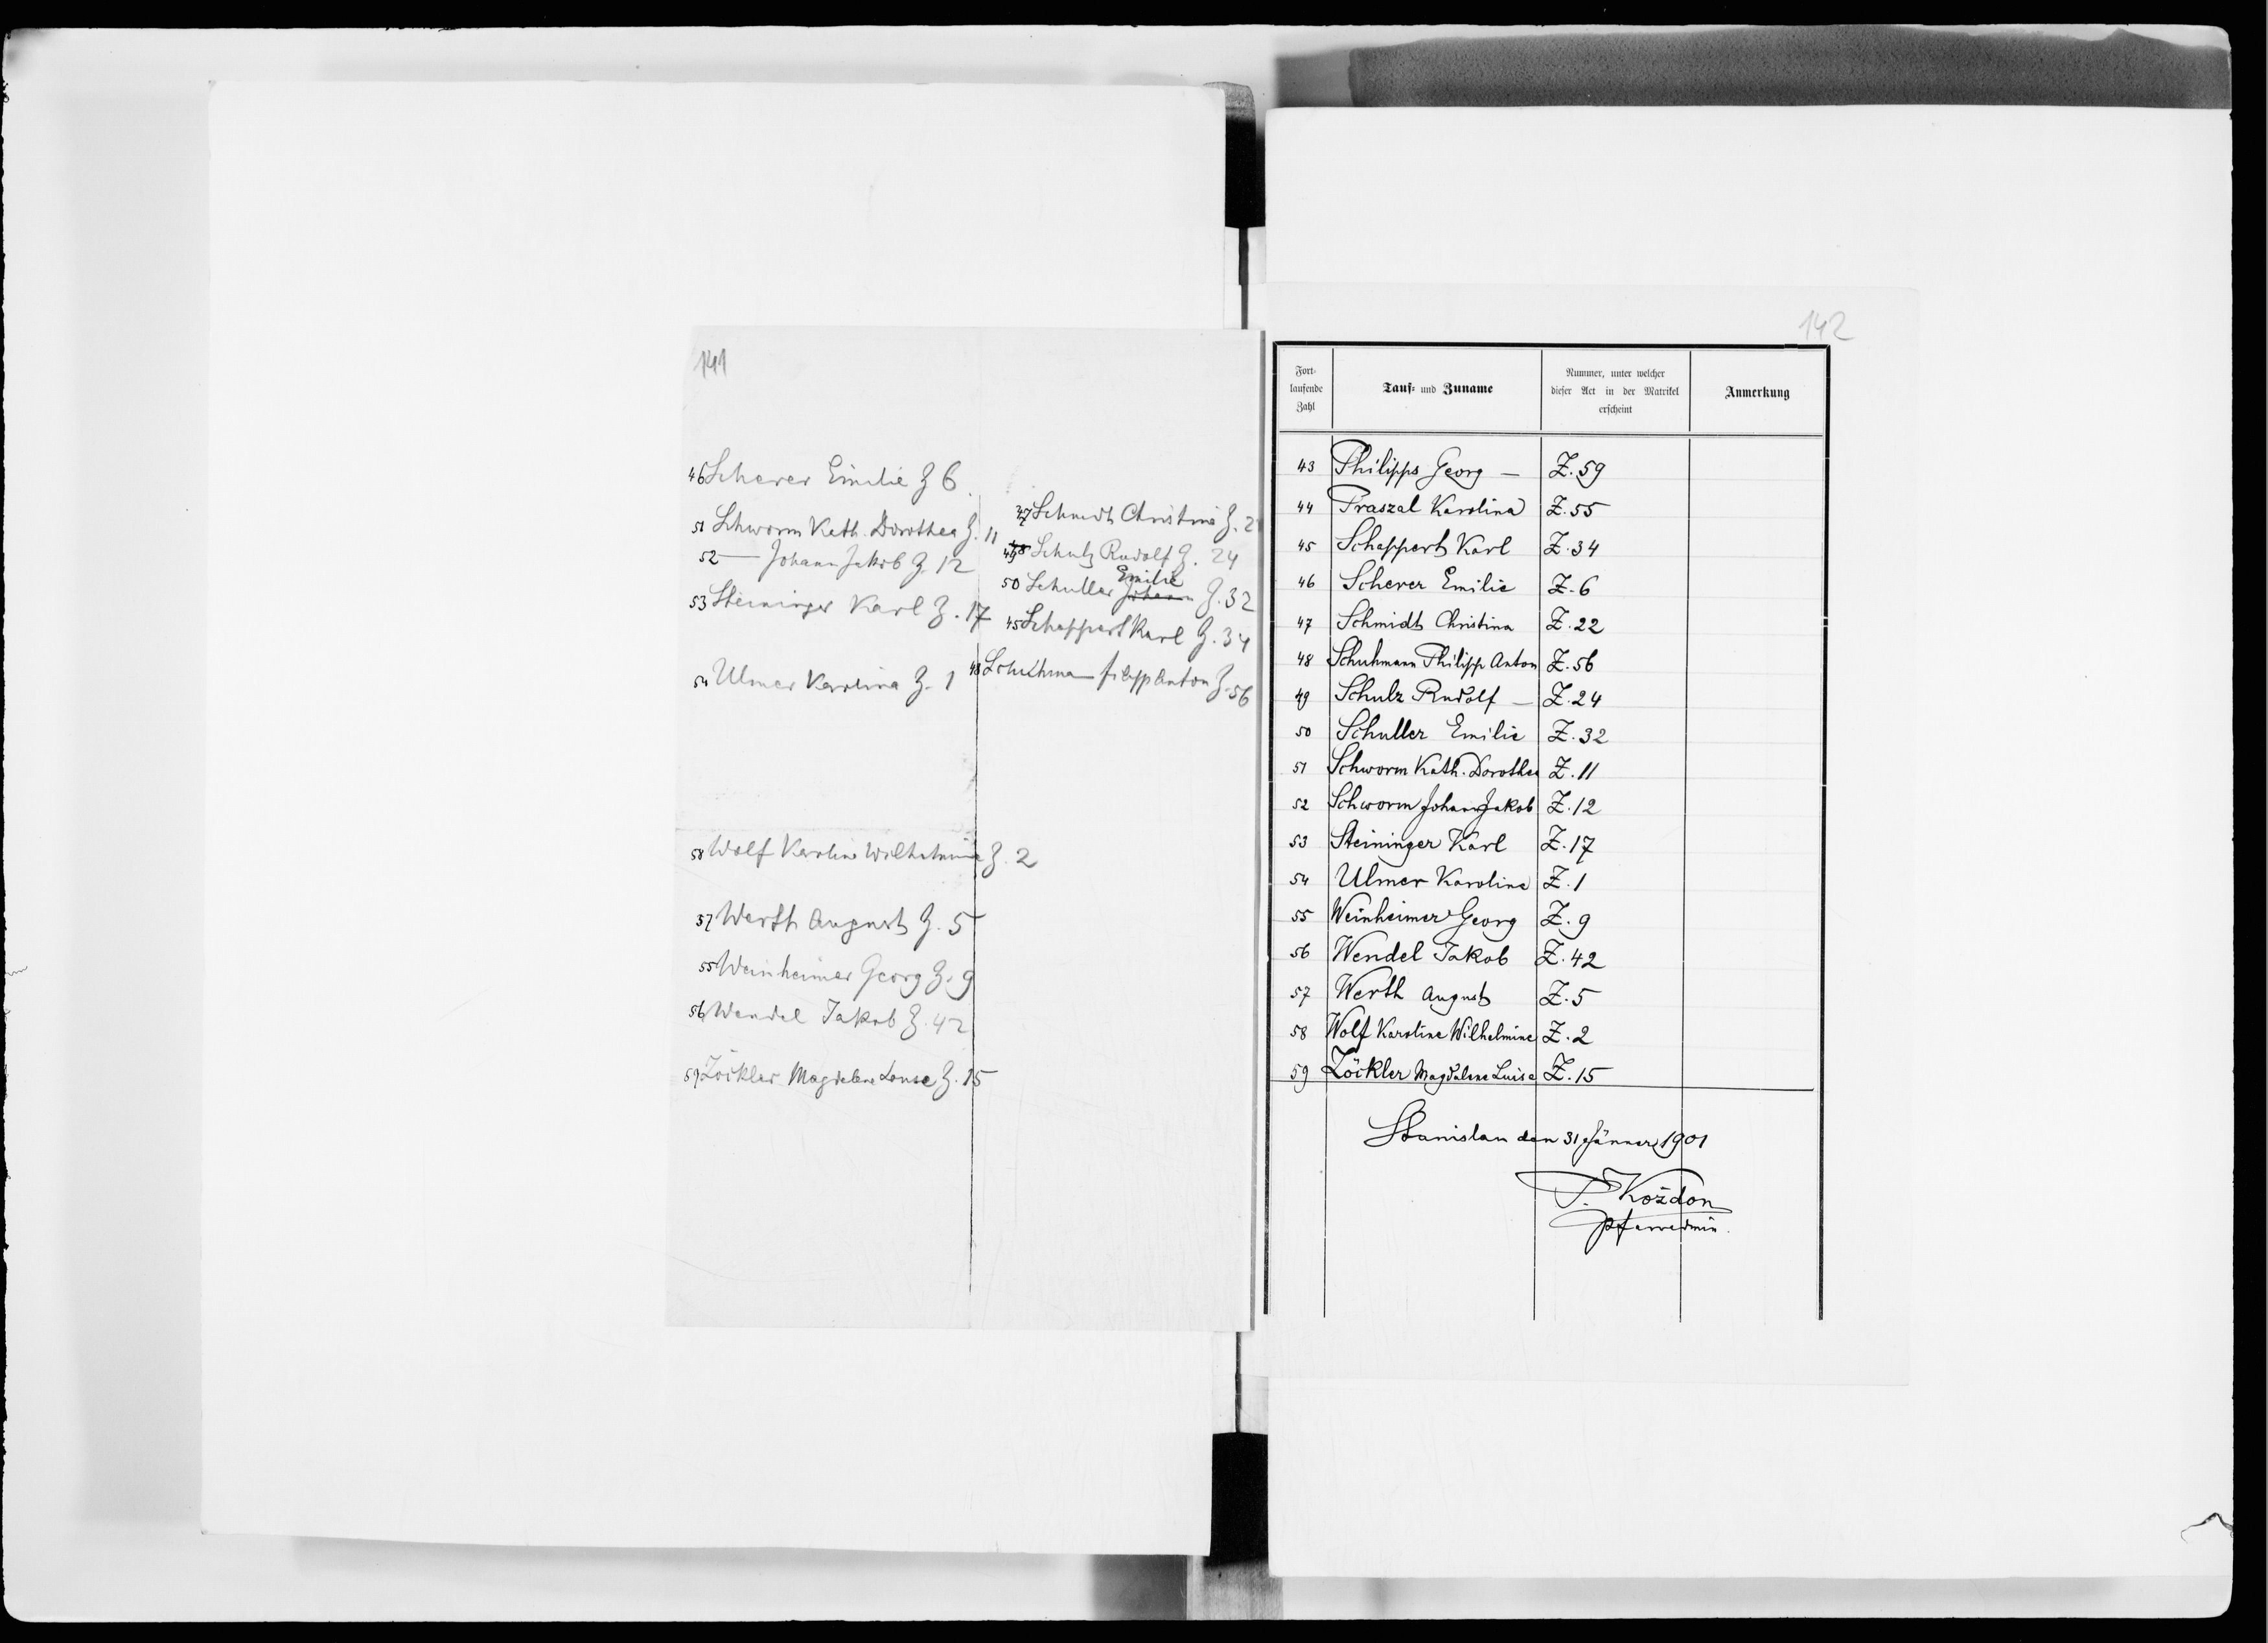 141
46 Scherer Emilie Z 6.
51 Schworm Kath. Dorothea Z. 11
52 — Johann Jakob Z. 12
53 Steininger Karl Z. 17
54 Ulmer Karolina Z. 1
58 Wolf Karoline Wilhelmine Z. 2
57 Werth August Z. 5
55 Weinheimer Georg Z. 9
56 Wendel Jakob Z. 42
59 Zöckler Magdalene Louse Z. 15
47 Schmidt Christina Z. 2
49 Schulz Rudolf Z. 24
50 Schuller Emilie Z. 32
45 Scheppert Karl Z. 34
48 Schuhmann Anton Z. 56
142
Fort-
laufende
Zahl
Tauf- und Zuname
Nummer, unter welcher
dieser Act in der Matrikel
erscheint
Anmerkung
43 Philipps Georg — Z. 59
44 Praszal Karolina Z. 55
45 Scheppert Karl Z. 34
46 Scherer Emilie Z. 6
47 Schmidt Christina Z. 22
48 Schuhmann Philipp Anton Z. 56
49 Schulz Rudolf — Z. 24
50 Schuller Emilie Z. 32
51 Schworm Kath. Dorothea Z. 11
52 Schworm Johann Jakob Z. 12
53 Steininger Karl Z. 17
54 Ulmer Karoline Z. 1
55 Weinheimer Georg Z. 9
56 Wendel Jakob Z. 42
57 Werth August Z. 5
58 Wolf Karoline Wilhelmine Z. 2
59 Zöckler Magdalene Luise Z. 15
Stanislau den 31 Jänner 1901
P. Kożdon
Pfarradmin.